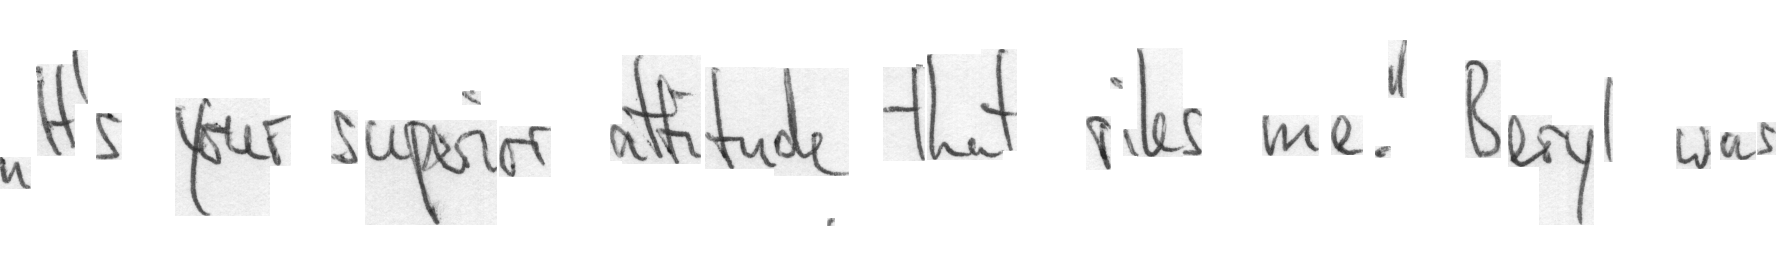 "It's your superior attitude that riles me." Beryl was